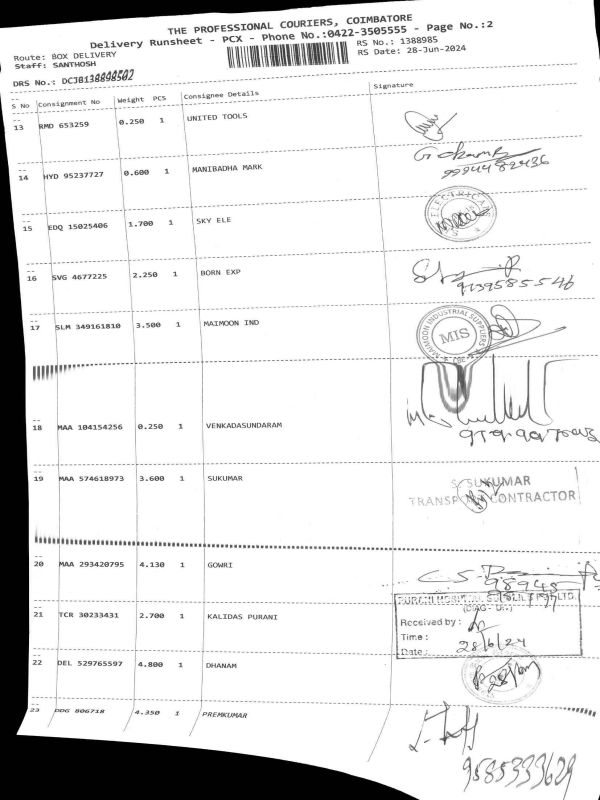 THE PROFESSIONAL COURIERS, COIMBATORE
Delivery Runsheet - PCX - Phone No.:0422-3505555 - Page No.:2
Route: BOX DELIVERY
RS No.: 1388985
Staff: SANTHOSH
RS Date: 28-Jun-2024
DRS No.:
S No Consignment No Weight PCS Consignee Details Signature
13 RMD 653259 0.250 1 UNITED TOOLS
14 HYD 95237727 0.600 1 MANIBADHA MARK
9994482436
15 EDQ 15025406 1.700 1 SKY ELE
ELECTRICAL
16 SVG 4677225 2.250 1 BORN EXP
9739585546
17 SLM 349161810 3.500 1 MAIMOON IND
MAIMOON INDUSTRIAL SUPPLIERS
MIS
CBE
18 MAA 104154256 0.250 1 VENKADASUNDARAM
19 MAA 574618973 3.600 1 SUKUMAR
S. SUKUMAR
TRANSPORT CONTRACTOR
20 MAA 293420795 4.130 1 GOWRI
98948
21 TCR 30233431 2.700 1 KALIDAS PURANI
Received by :
Time :
Date : 28/6/24
22 DEL 529765597 4.800 1 DHANAM
23 DDG 806718 4.350 1 PREMKUMAR
9585333629